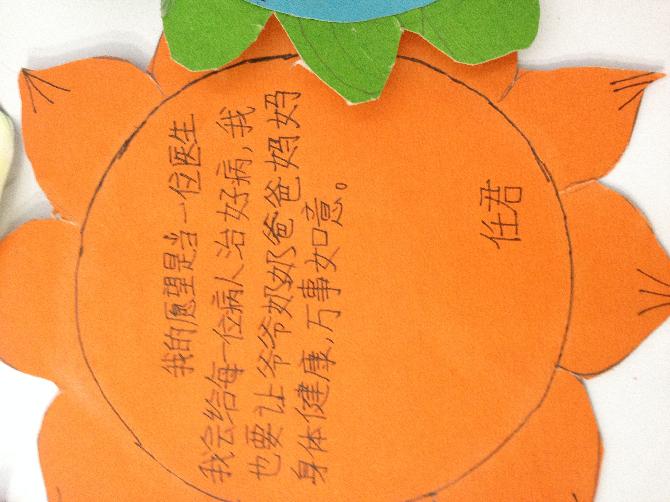 我的愿望是当一位医生
我会给每一位病人治好病,我
也要让爷爷奶奶爸爸妈妈
身体健康,万事如意。
任君